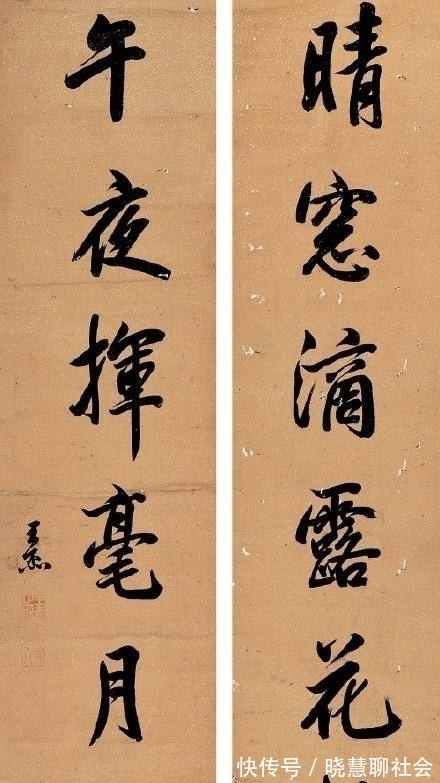 晴窓滴露花
午夜揮毫月
王杰
快传号/晓慧聊社会